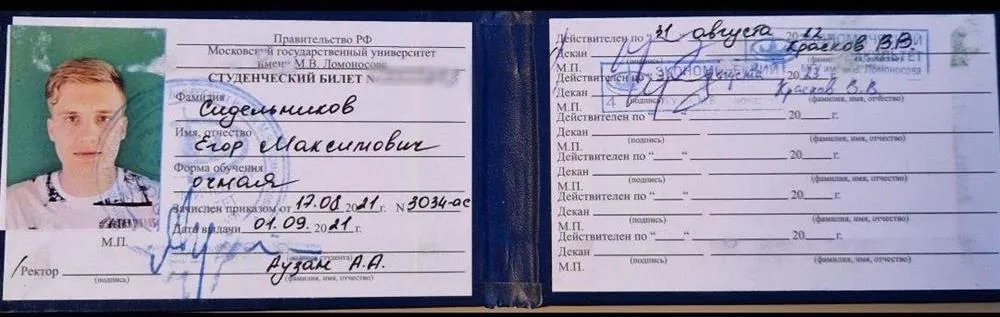 Правительство РФ
Московский государственный университет
имени М.В. Ломоносова
СТУДЕНЧЕСКИЙ БИЛЕТ №
Фамилия
Сидельников
Имя, отчество
Егор Максимович
Форма обучения
очная
Зачислен приказом от 17.08 2021 г. N 3034-ас
Дата выдачи 01.09. 2021 г.
М.П.
Аузан А.А.
Ректор
(подпись) (фамилия, имя, отчество)
Действителен по “31” августа 2022
Декан Красков В.В.
М.П.
Действителен по августа 2023
Декан Красков В.В.
(подпись) (фамилия, имя, отчество)
М.П.
Действителен по “ ” 20 г.
Декан
(подпись) (фамилия, имя, отчество)
М.П.
Действителен по “ ” 20 г.
Декан
(подпись) (фамилия, имя, отчество)
М.П.
Действителен по “ ” 20 г.
Декан
(подпись) (фамилия, имя, отчество)
М.П.
Действителен по “ ” 20 г.
Декан
(подпись) (фамилия, имя, отчество)
М.П.